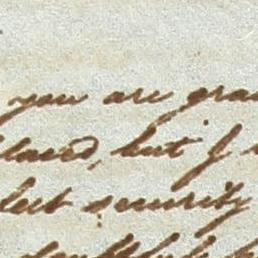 you are gra
laced, but I
lect security